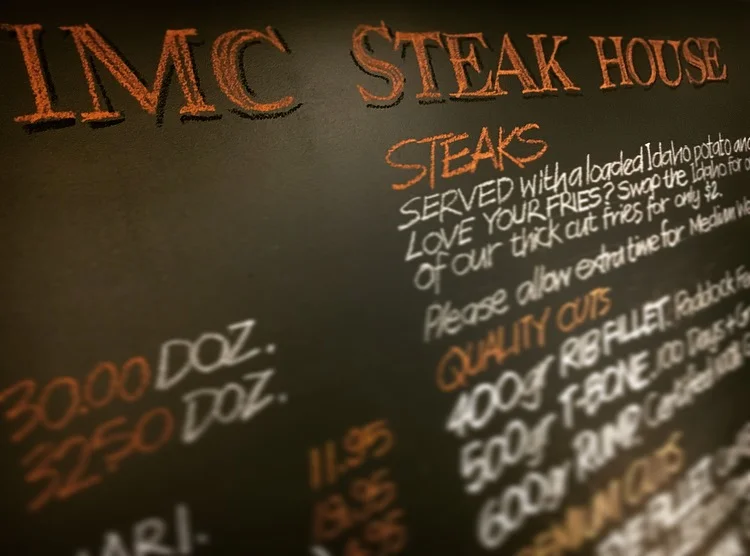 IMC STEAK HOUSE
STEAKS
SERVED with a loaded Idaho potato and
LOVE YOUR FRIES? Swap the Idaho for a
of our thick cut fries for only $2.
Please allow extra time for Medium W
QUALITY CUTS
400gr RIB FILLET. Paddock
500gr T-BONE 100 Days+
600gr RUMP. Certified
PREMIUM CUTS
FILLET
30.00 DOZ.
32.50 DOZ.
11.95
ARI.